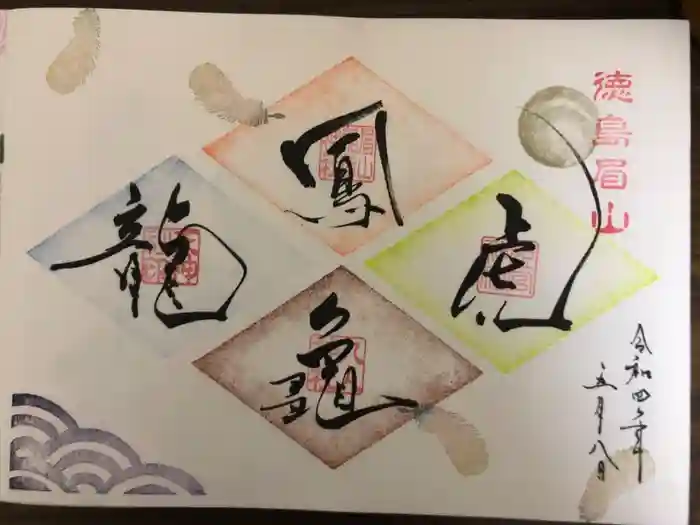 徳島眉山
虎
鳳
龜
龍
令和四年
五月八日